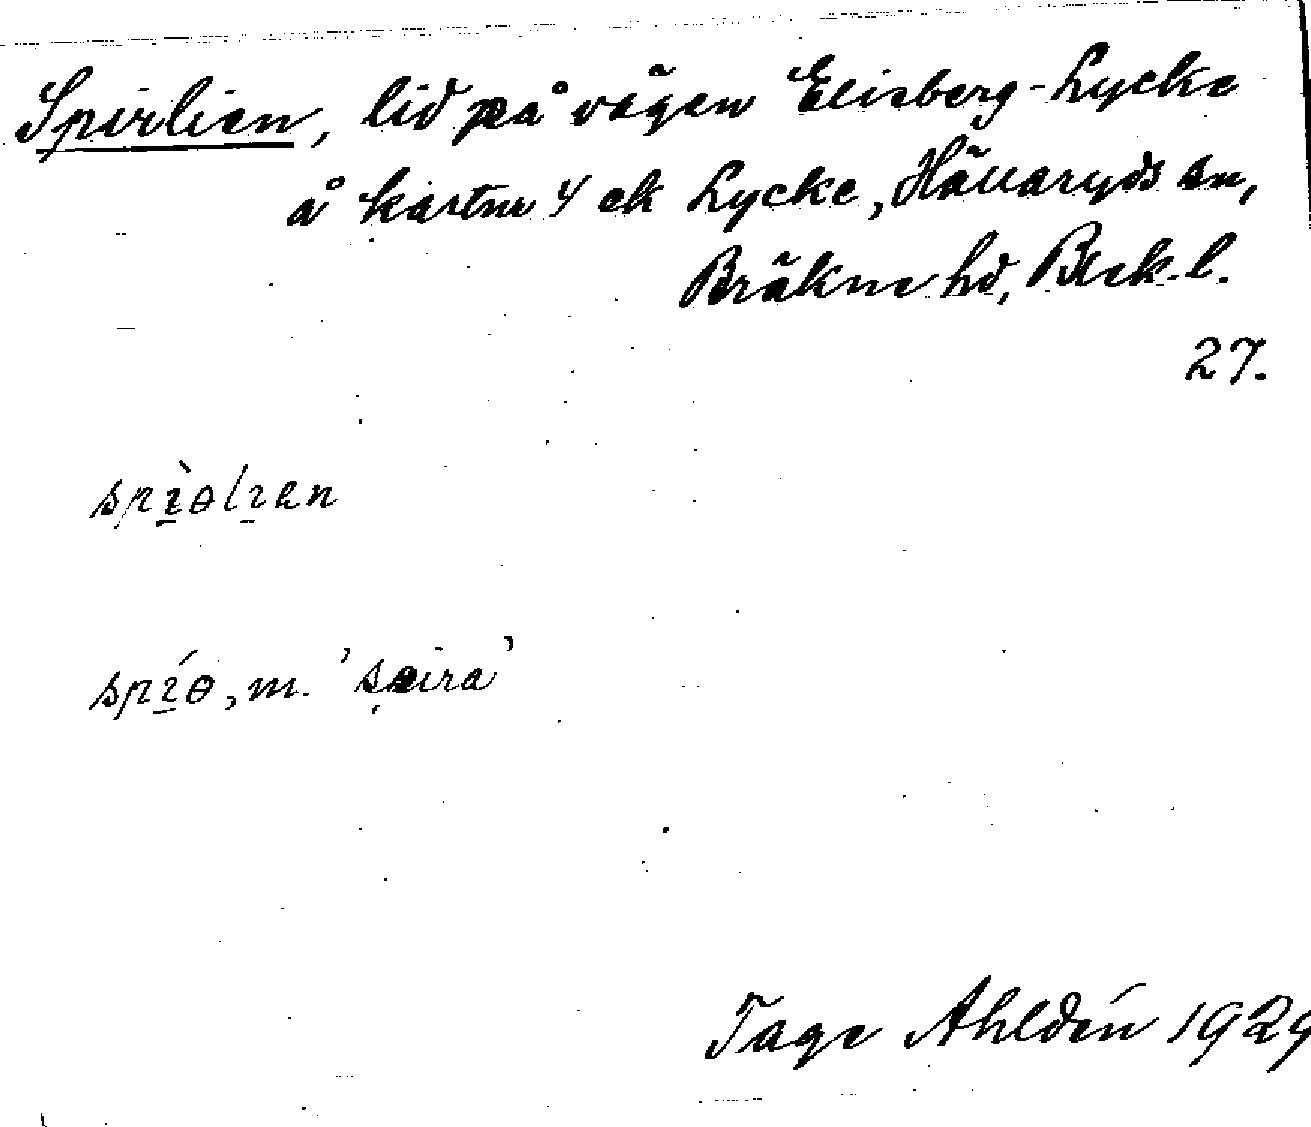 Spirlien, lid på vägen Elisberg-Lycke
å kartnr 4 ek Lycke, Hällaryds sn,
Bräkne hd, Blek. l.
27.
spìəlɪen
spíə, m. 'spira'
Tage Ahldén 1929